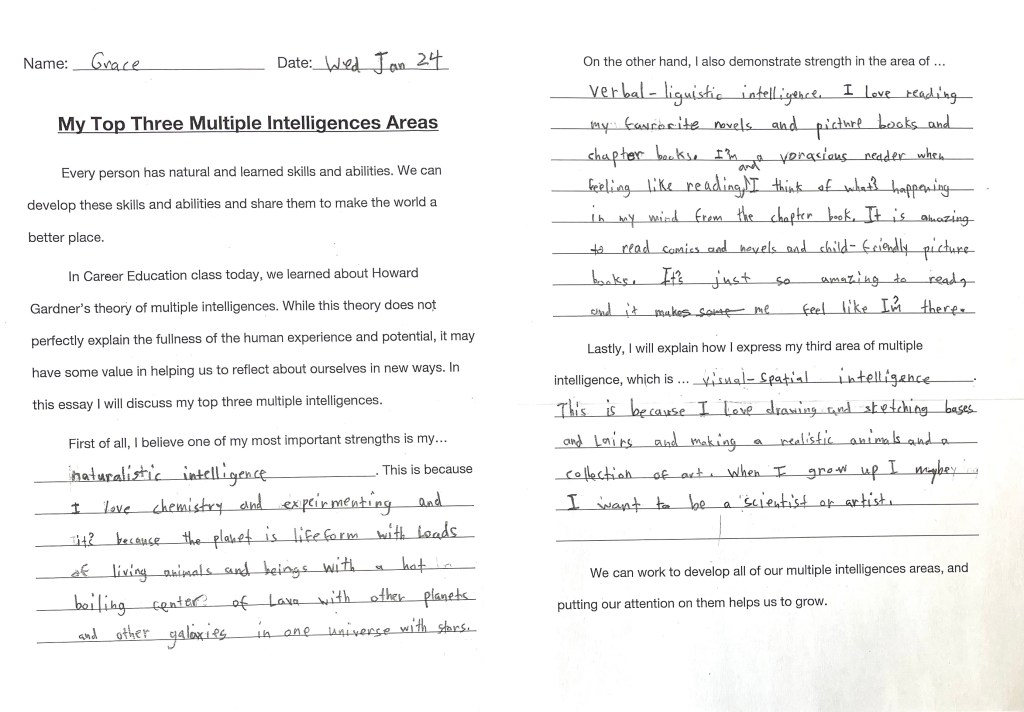 Name: Grace Date: Wed Jan 24
My Top Three Multiple Intelligences Areas
Every person has natural and learned skills and abilities. We can
develop these skills and abilities and share them to make the world a
better place.
In Career Education class today, we learned about Howard
Gardner's theory of multiple intelligences. While this theory does not
perfectly explain the fullness of the human experience and potential, it may
have some value in helping us to reflect about ourselves in new ways. In
this essay I will discuss my top three multiple intelligences.
First of all, I believe one of my most important strengths is my...
naturalistic intelligence. This is because
I love chemistry and expeirmenting and
it's because the planet is lifeform with loads
of living animals and beings with a hot
boiling center of Lava with other planets
and other galaxies in one universe with stars.
On the other hand, I also demonstrate strength in the area of ...
Verbal-liguistic intelligence. I love reading
my favrorite novels and picture books and
chapter books. I'm a voracious reader when
feeling like reading, and I think of what's happening
in my mind from the chapter book. It is amazing
to read comics and novels and child-friendly picture
books. It's just so amazing to read,
and it makes some me feel like I'm there.
Lastly, I will explain how I express my third area of multiple
intelligence, which is ... visual-spatial intelligence.
This is because I love drawing and sketching bases
and Lairs and making a realistic animals and a
collection of art. When I grow up I maybey
I want to be a scientist or artist.
We can work to develop all of our multiple intelligences areas, and
putting our attention on them helps us to grow.